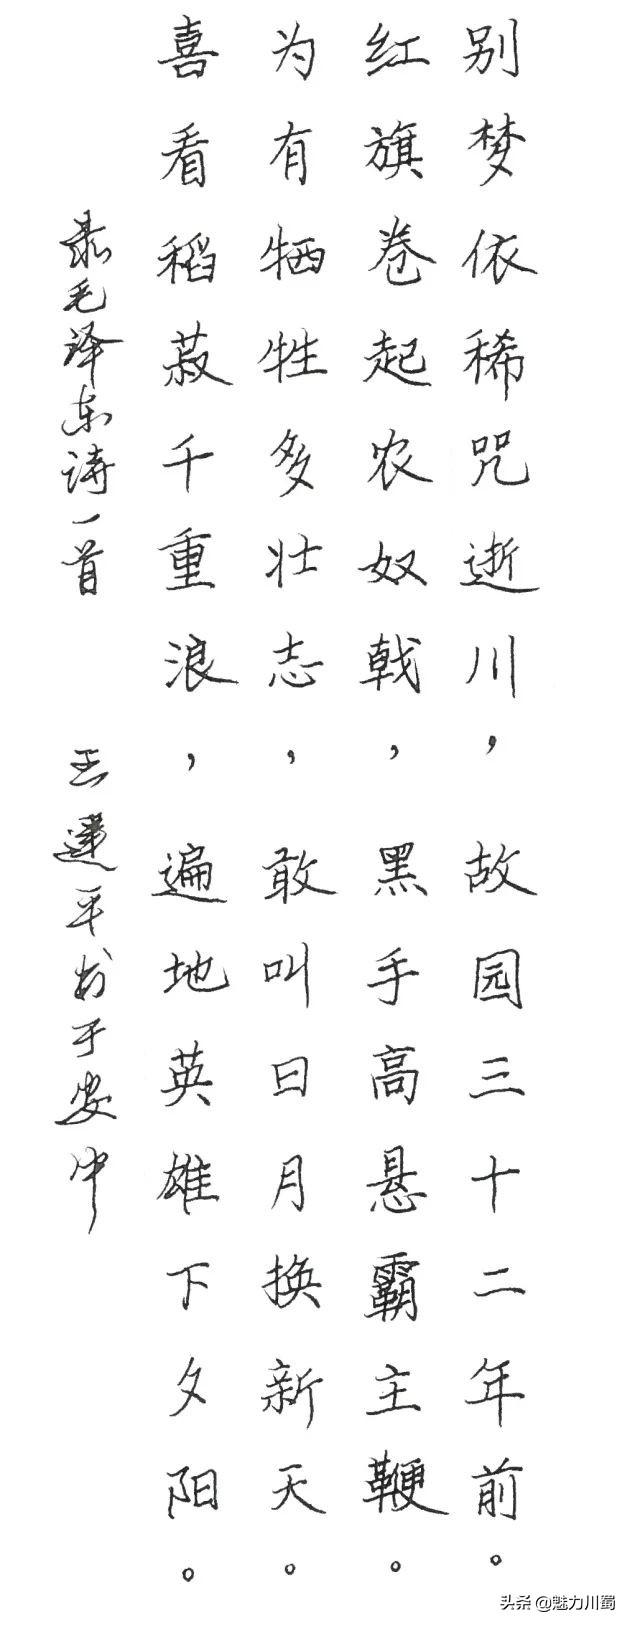 别梦依稀咒逝川，故园三十二年前。
红旗卷起农奴戟，黑手高悬霸主鞭。
为有牺牲多壮志，敢叫日月换新天。
喜看稻菽千重浪，遍地英雄下夕阳。
录毛泽东诗一首 王建平书于安中
头条@魅力川蜀